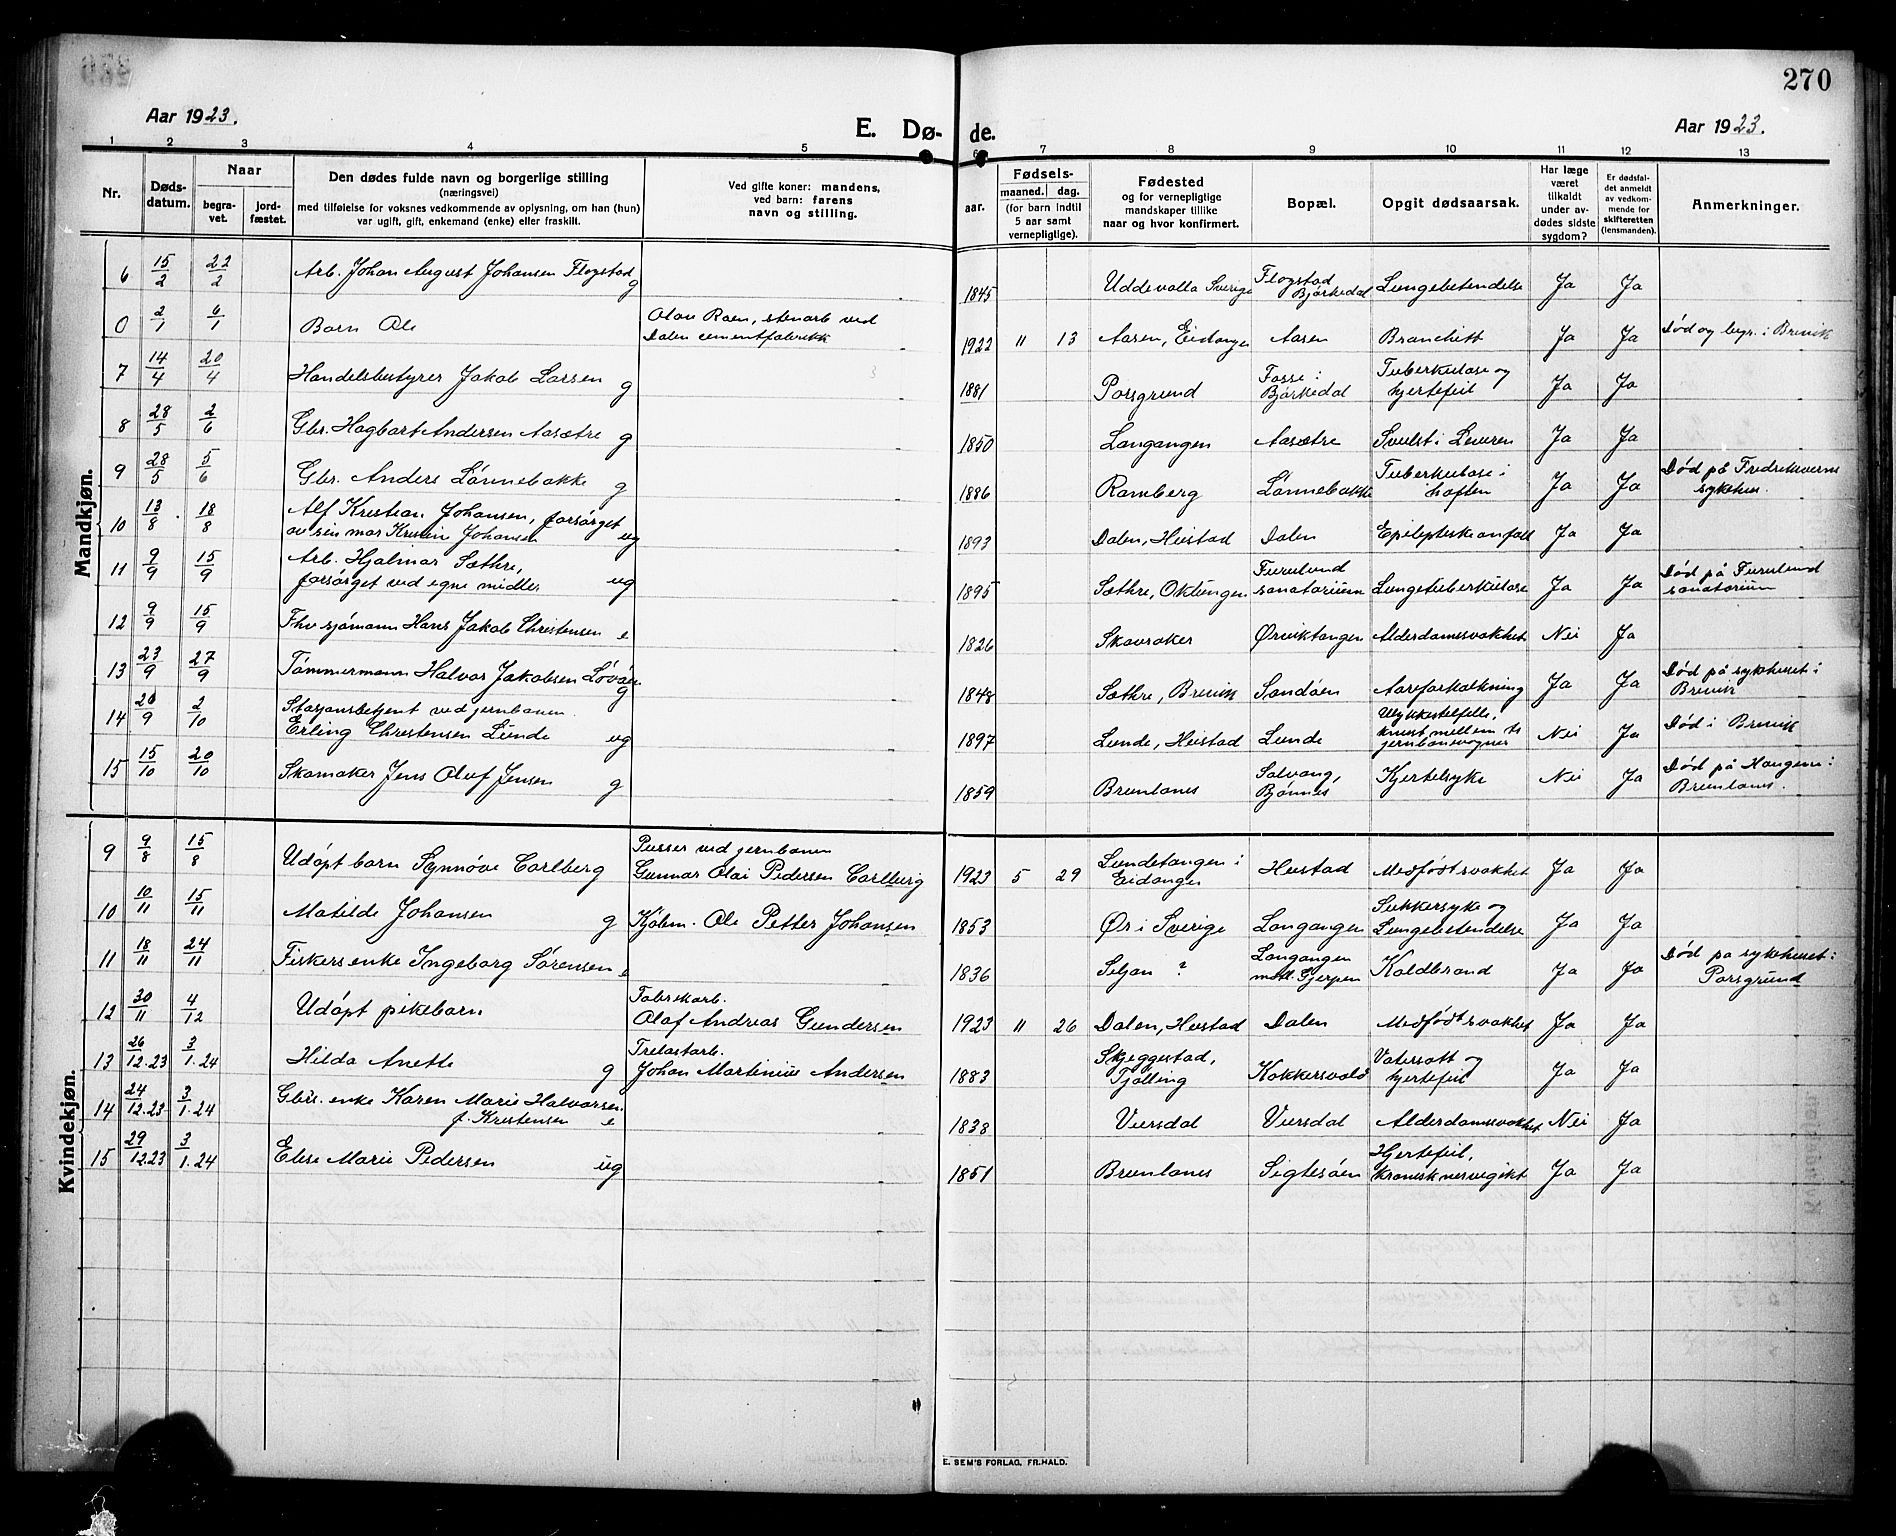 270
Aar 1923.
E. Dø-
de.
Aar 1923.
1 2 3 4 5 6 7 8 9 10 11 12 13
Nr.
Døds-
datum.
Naar
begra-
vet.
jord-
fæstet.
Den dødes fulde navn og borgerlige stilling
(næringsvei)
med tilføielse for voksnes vedkommende av oplysning, om han (hun)
var ugift, gift, enkemand (enke) eller fraskilt.
Ved gifte koner: mandens,
ved barn: farens
navn og stilling.
Fødsels-
aar.
maaned. dag.
(for barn indtil
5 aar samt
vernepligtige).
Fødested
og for vernepligtige
mandskaper tillike
naar og hvor konfirmert.
Bopæl.
Opgit dødsaarsak.
Har læge
været
tilkaldt
under av-
dødes sidste
sygdom?
Er dødsfal-
det anmeldt
av vedkom-
mende for
skifteretten
(lensmanden).
Anmerkninger.
Mandkjøn.
6 15/2 22/2 Arb. Johan August Johansen Flogstad g 1845 Uddevalla Sverige Flogstad Bjørkedal Lungebetendelse Ja Ja
0 2/1 6/1 Barn Ole Olav Roen, stenarb ved Dalen cementfabrikk 1922 11 13 Aasen, Eidanger Aasen Bronchitt Ja Ja Død og begr. i Brevik
7 14/4 20/4 Handelsbestyrer Jakob Larsen g 1881 Porsgrund Fosse i Bjørkedal Tuberkulose og hjertefeil Ja Ja
8 28/5 2/6 Gbr. Hagbart Andersen Aasætre g 1850 Langangen Aasætre Svulst i Leveren Ja Ja
9 28/5 5/6 Gbr. Anders Lønnebakke g 1886 Ramberg Lønnebakke Tuberkulose i hoften Ja Ja Død på Fredriksverns sykehus.
10 13/8 18/8 Alf Kristian Johansen, forsørget av sin mor Kristine Johansen ug 1893 Dalen, Heistad Dalen Epileptiske anfall Ja Ja
11 9/9 15/9 Arb. Hjalmar Sæthre, forsørget ved egne midler ug 1895 Sæthre, Oklungen Furulund sanatorium Lungetuberkulose Ja Ja Død på Furulund sanatorium
12 9/9 15/9 Fhv sjømann Hans Jakob Christensen e 1826 Skavraker Ørviktangen Alderdomssvakhet Nei Ja
13 23/9 27/9 Tømmermann Halvor Jakobsen Løvåsen g 1848 Sæthre, Brevik Sandøen Aareforkalkning Ja Ja Død på sykehuset i Brevik
14 20/9 2/10 Stasjonsbetjent ved jernbanen. Erling Christensen Lunde ug 1897 Lunde, Heistad Lunde Ulykkestilfelle, knust mellem to jernbanevogner Nei Ja Død i Brevik
15 15/10 20/10 Skomaker Jens Olaf Jensen g 1859 Brunlanes Solvang, Bjønnes Hjertesyke Nei Ja Død på Haugene i Brunlanes.
Kvindekjøn.
9 9/8 15/8 Udøpt barn Synnøve Carlberg Pusser ved jernbanen Gunnar Olai Pedersen Carlberg 1923 5 29 Lundetangen i Eidanger Heistad Medfødt svakhet Ja Ja
10 10/11 15/11 Matilde Johansen g Kjøbm. Ole Petter Johansen 1853 Ør i Sverige Langangen Sukkersyke og Lungebetendelse Ja Ja
11 18/11 24/11 Fiskers enke Ingeborg Sørensen e 1836 Seljan ? Langangen mdl. Gjerpen Koldbrand Ja Ja Død på sykehuset i Porsgrund
12 30/11 4/12 Udøpt pikebarn Fabrikarb. Olaf Andreas Gundersen 1923 11 26 Dalen, Heistad Dalen Medfødt svakhet Ja Ja
13 26/12.23 3/1.24 Hilda Anette g Trelastarb. Johan Martinius Andersen 1883 Skjeggestad, Tjølling Kokkersvold Vatersott og hjertefeil Ja Ja
14 24/12.23 3/1.24 Gbr. enke Karen Marie Halvorsen f. Kristensen e 1838 Viersdal Viersdal Alderdomssvakhet Nei Ja
15 29/12.23 3/1.24 Elise Marie Pedersen ug 1851 Brunlanes Sigtesøen Hjertefeil, kronisk nervegikt Ja Ja
E. SEM'S FORLAG, FR.HALD.